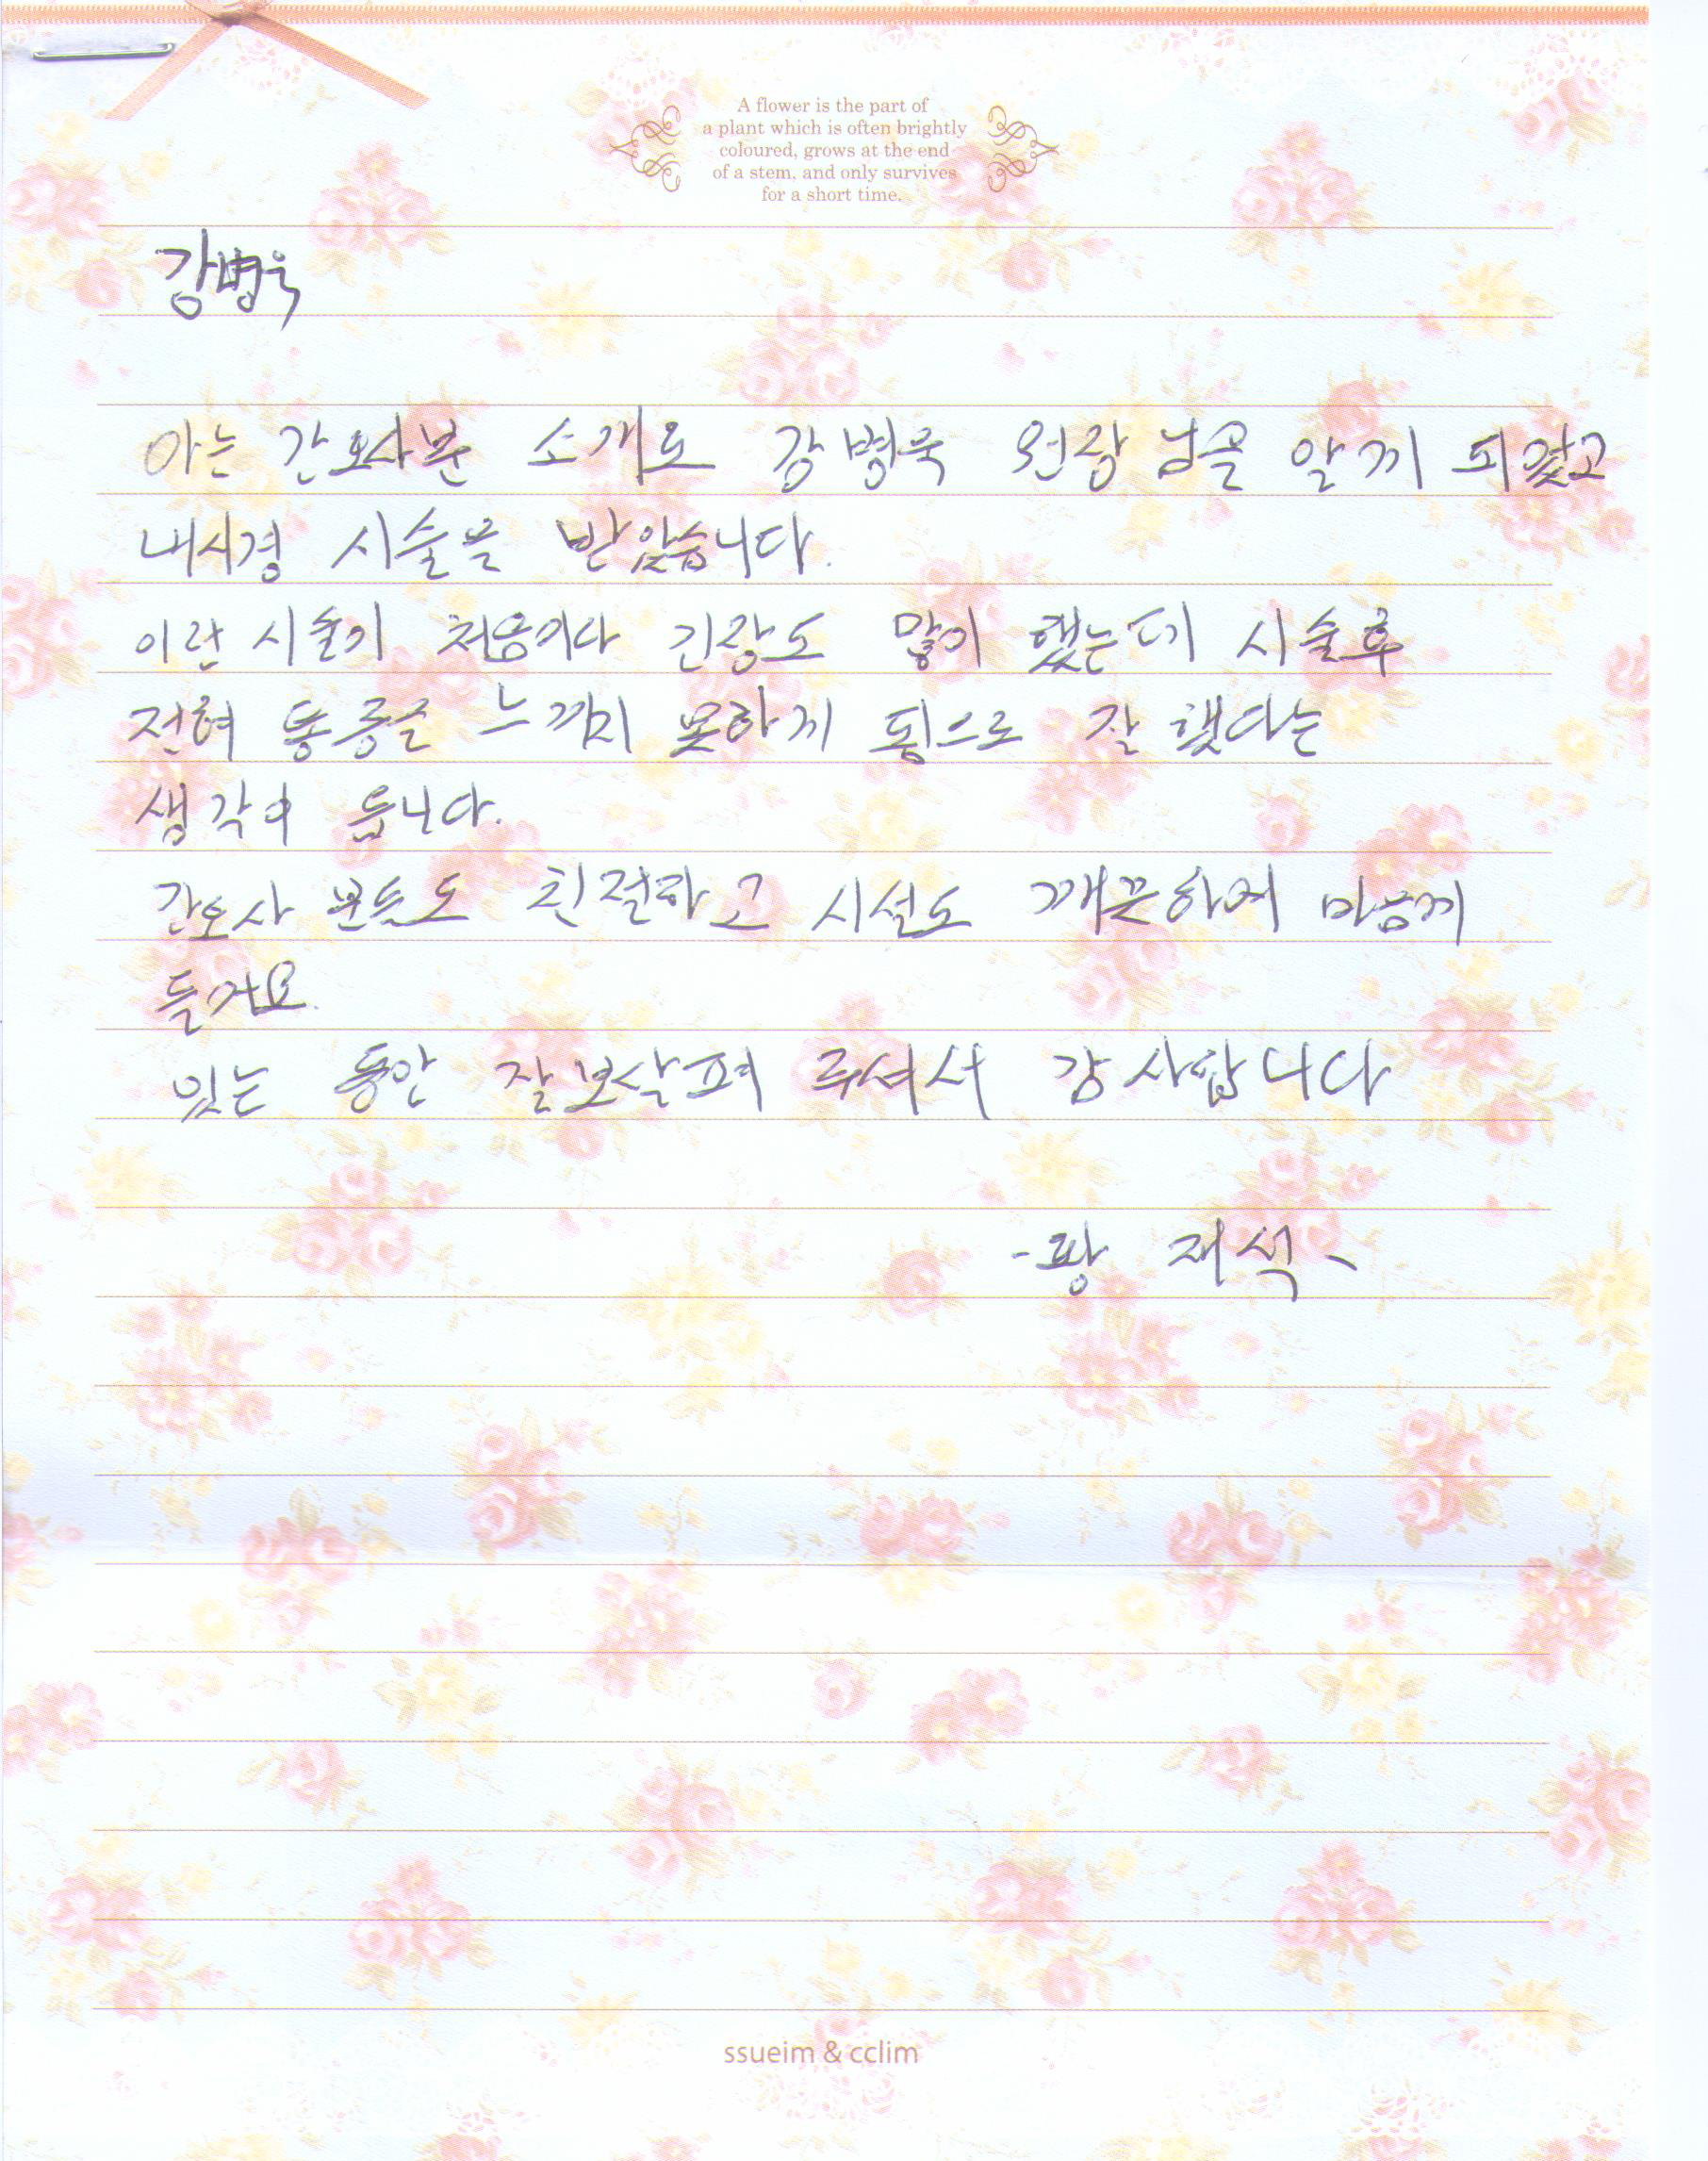 A flower is the part of
a plant which is often brightly
coloured, grows at the end
of a stem, and only survives
for a short time.
강병욱
아는 간호사분 소개로 강병욱 원장님을 알게 되었고
내시경 시술을 받았습니다.
이런 시술이 처음이라 긴장도 많이 했는데 시술후
전혀 통증을 느끼지 못하게 됨으로 잘 했다는
생각이 듭니다.
간호사 분들도 친절하고 시설도 깨끗하여 마음에
들어요.
있는 동안 잘 보살펴 주셔서 감사합니다
- 재석 -
ssueim & cclim